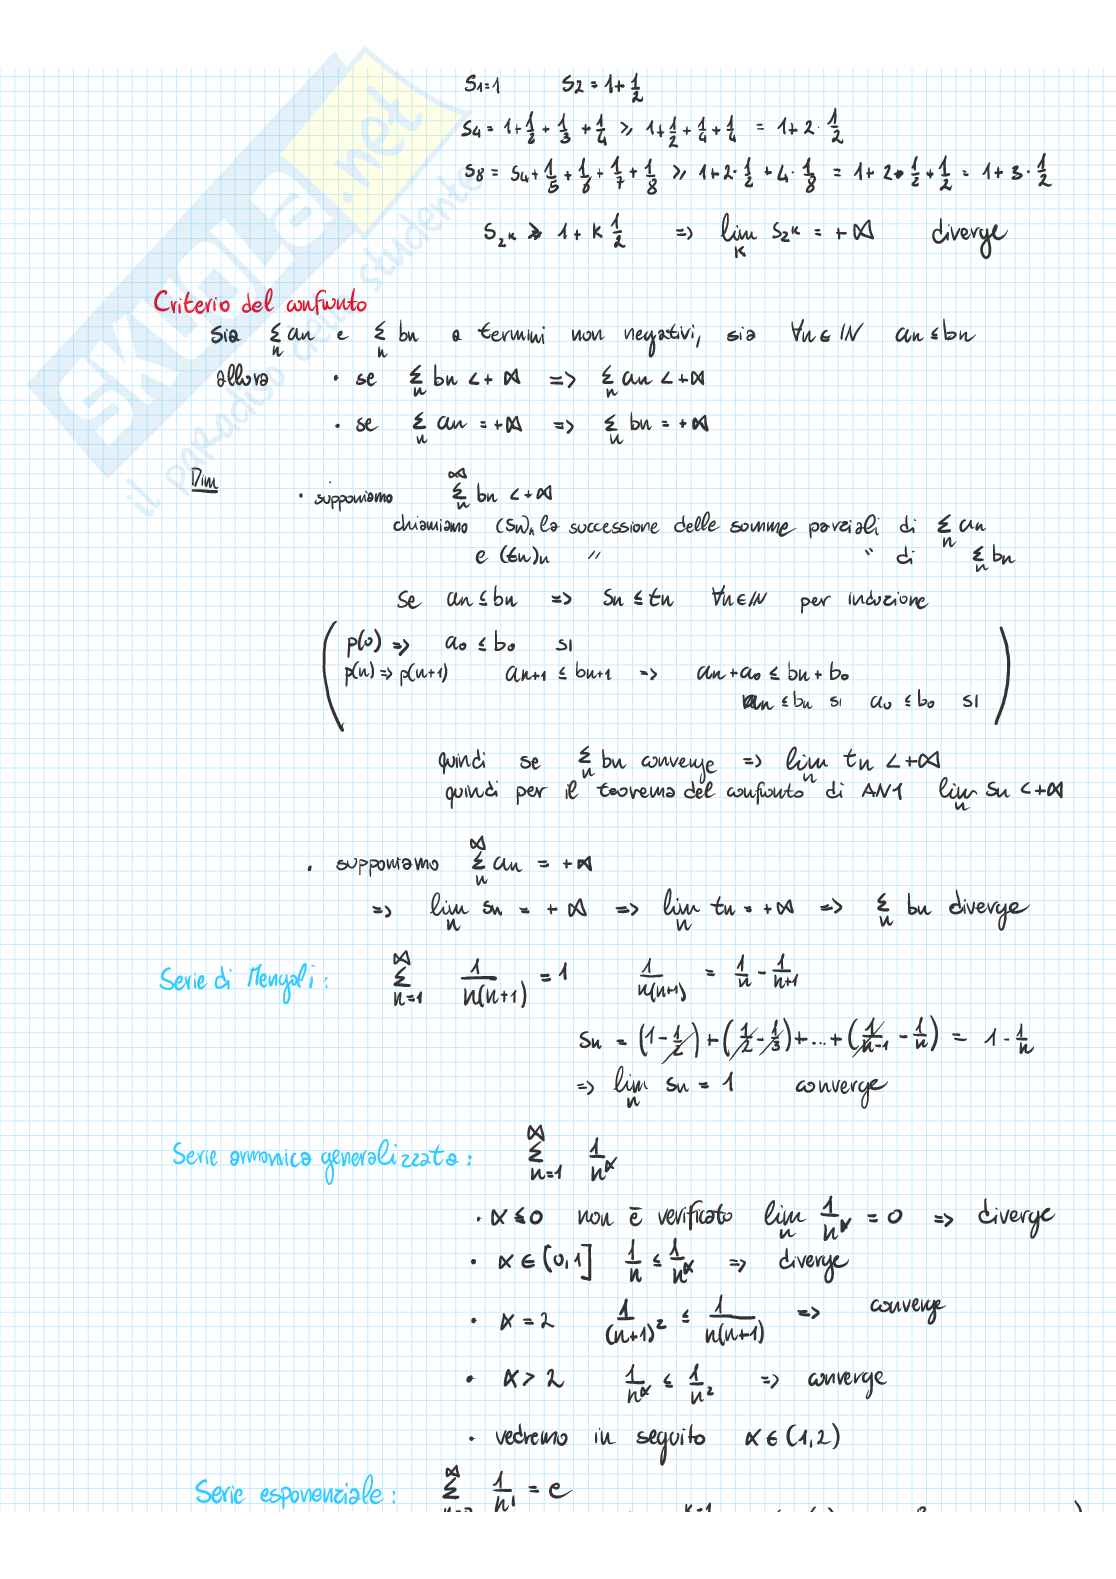 S1=1 S2 = 1+ 1/2
S4 = 1+ 1/2 + 1/3 + 1/4 ≥ 1+ 1/2 + 1/4 + 1/4 = 1+ 2 · 1/2
S8 = S4 + 1/5 + 1/6 + 1/7 + 1/8 ≥ 1+2· 1/2 + 4· 1/8 = 1+ 2· 1/2 + 1/2 = 1+ 3 · 1/2
S_2^k ≥ 1+ k 1/2 => lim_k S_2^k = +∞ diverge
Criterio del confronto
Sia Σ_n an e Σ_n bn a termini non negativi, sia ∀n∈IN an ≤ bn
allora · se Σ_n bn <+∞ => Σ_n an <+∞
· se Σ_n an = +∞ => Σ_n bn = +∞
Dim · supponiamo Σ_n^∞ bn <+∞
chiamiamo (Sn)n la successione delle somme parziali di Σ_n an
e (tn)n " " di Σ_n bn
Se an ≤ bn => Sn ≤ tn ∀n∈IN per induzione
( p(0) => a0 ≤ b0 sì
p(n) => p(n+1) an+1 ≤ bn+1 => an+a0 ≤ bn+b0
an ≤ bn sì a0 ≤ b0 sì )
quindi se Σ_n bn converge => lim_n tn <+∞
quindi per il teorema del confronto di AN1 lim_n Sn <+∞
· supponiamo Σ_n^∞ an = +∞
=> lim_n Sn = +∞ => lim_n tn = +∞ => Σ_n bn diverge
Serie di Mengali: Σ_n=1^∞ 1/n(n+1) = 1 1/n(n+1) = 1/n - 1/n+1
Sn = (1- 1/2) + (1/2 - 1/3) + ... + (1/n-1 - 1/n) = 1 - 1/n
=> lim_n Sn = 1 converge
Serie armonica generalizzata: Σ_n=1^∞ 1/n^α
· α ≤ 0 non è verificato lim_n 1/n^α = 0 => diverge
· α ∈ (0,1] 1/n ≤ 1/n^α => diverge
· α = 2 1/(n+1)^2 ≤ 1/n(n+1) => converge
· α > 2 1/n^α ≤ 1/n^2 => converge
· vedremo in seguito α ∈ (1,2)
Serie esponenziale: Σ^∞ 1/n! = e
SKUOLA.net
il paradiso dello studente